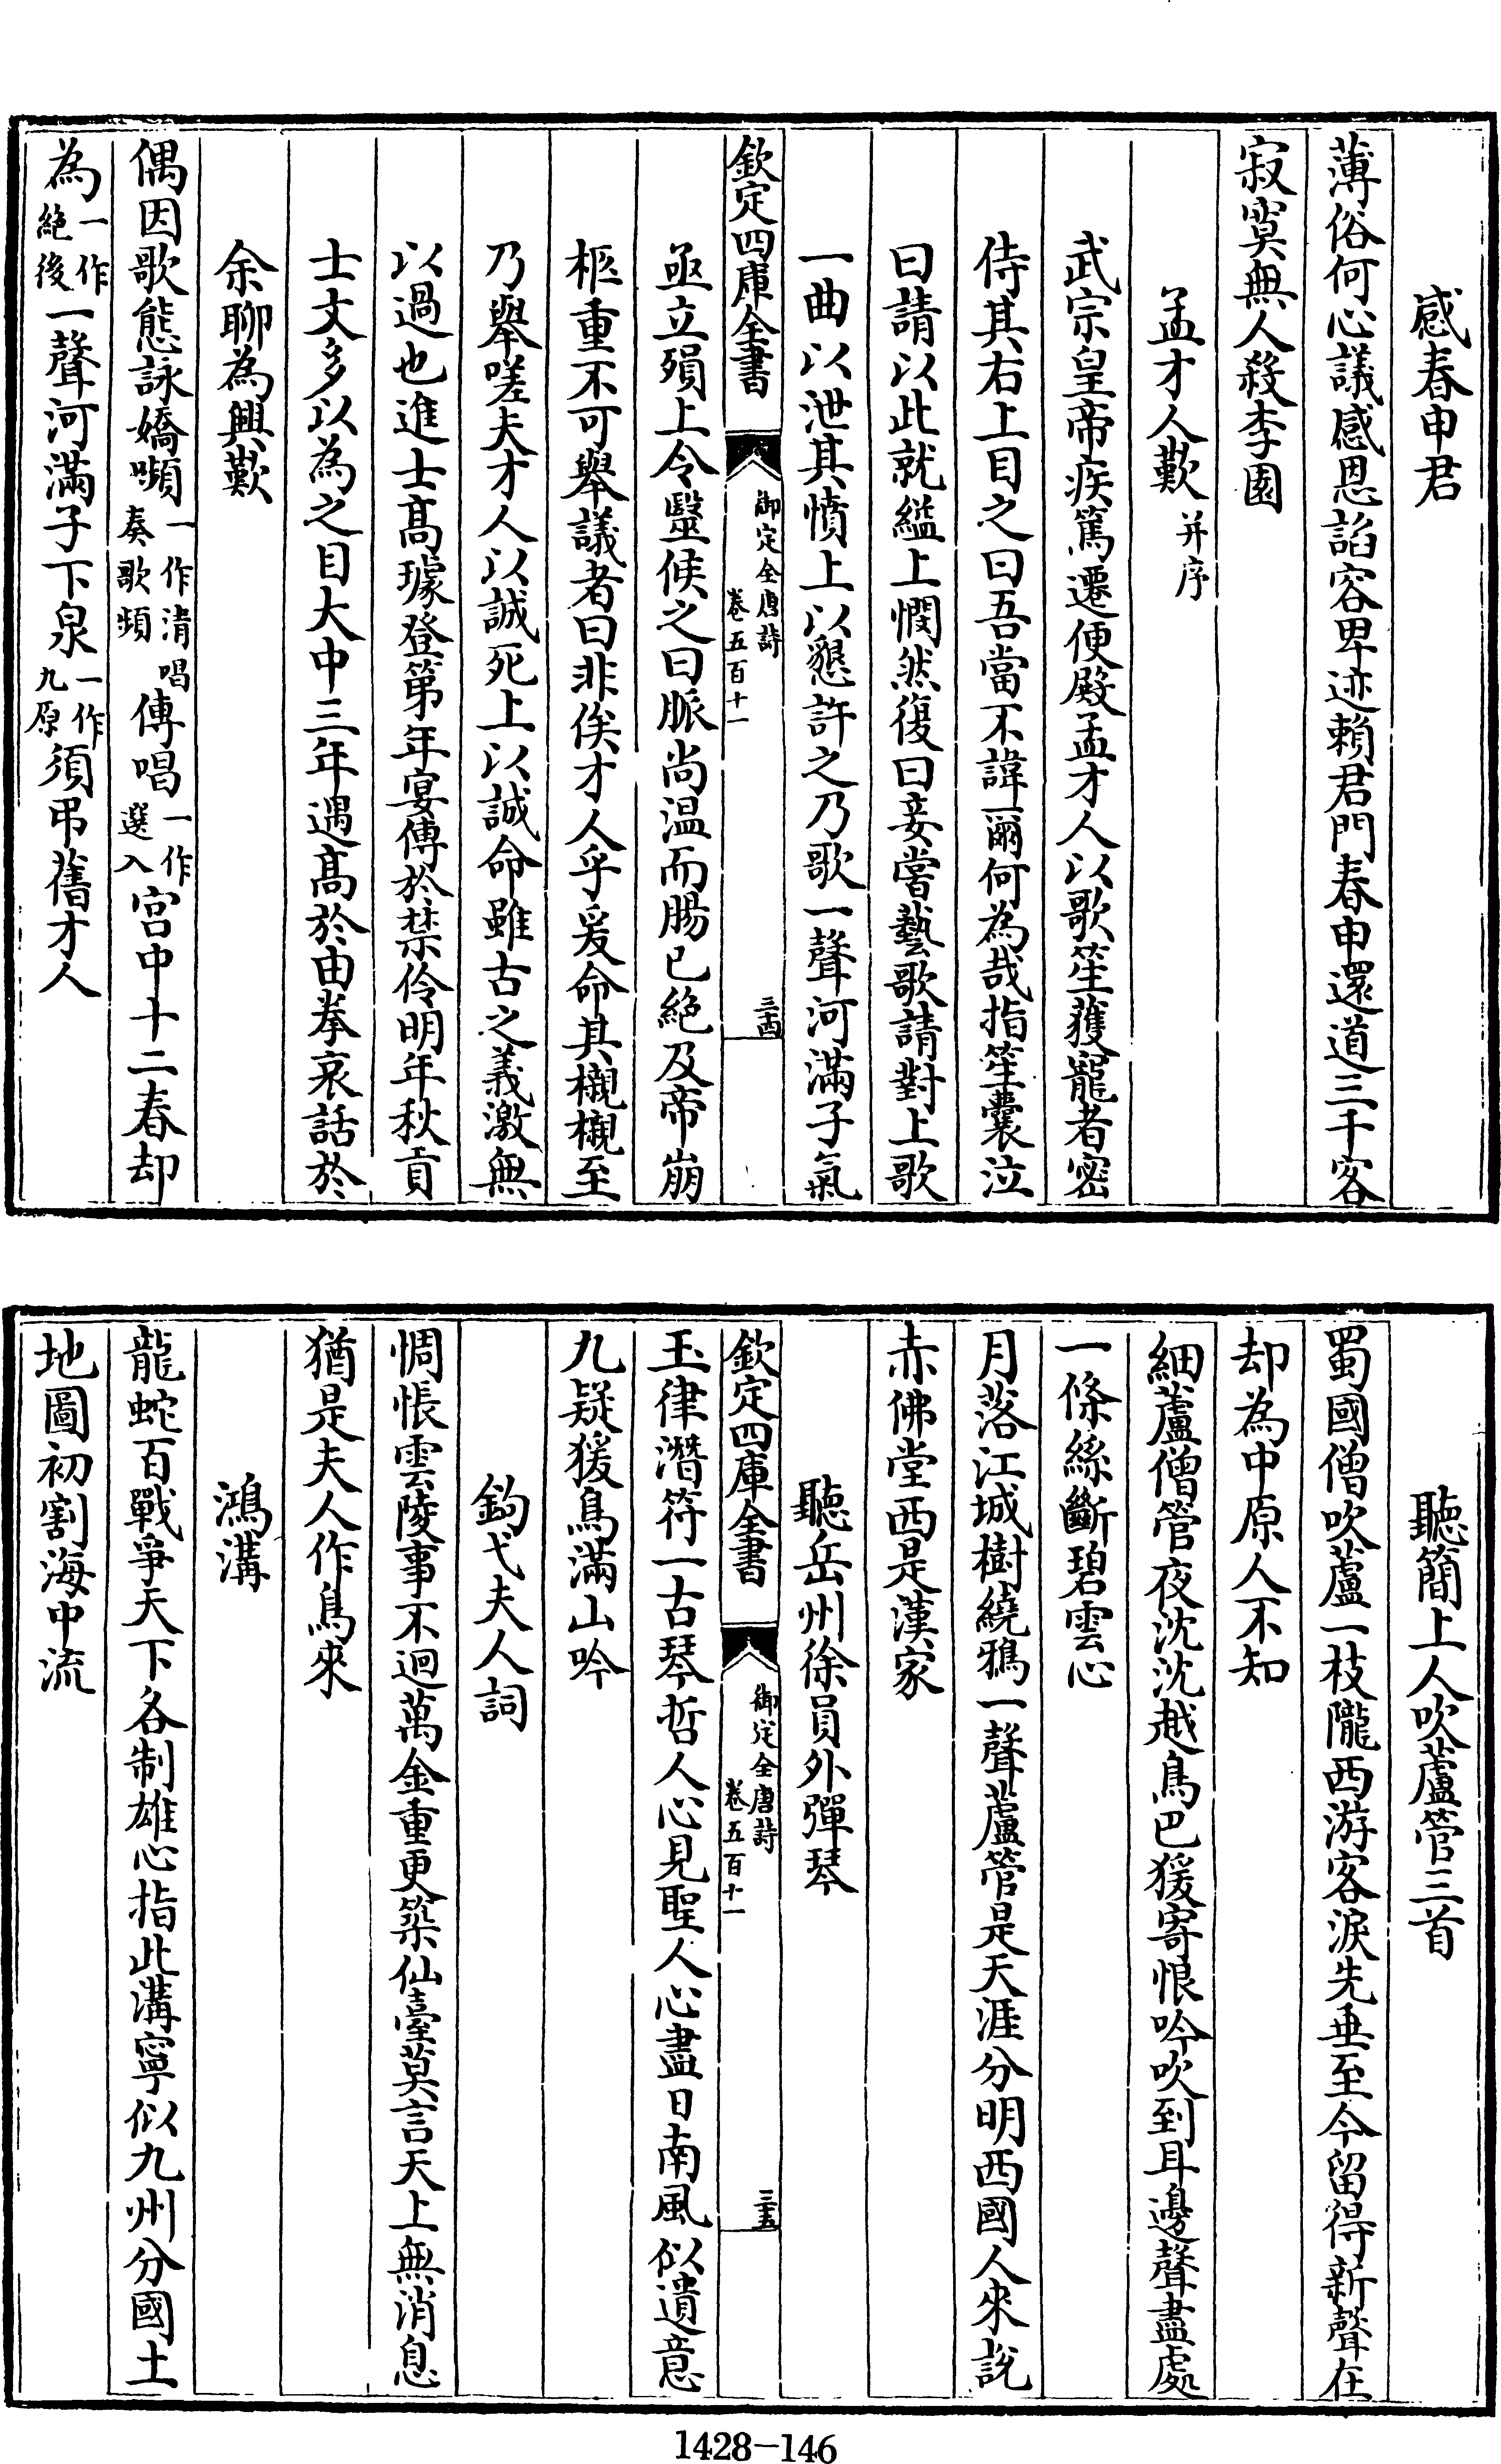 感春申君
薄俗何心議感恩諂容卑迹賴君門春申還道三千客
寂寞無人殺李園
孟才人歎并序
武宗皇帝疾篤遷便殿孟才人以歌笙獲寵者密
侍其右上目之曰吾當不諱爾何為哉指笙囊泣
曰請以此就縊上憫然復曰妾嘗藝歌請對上歌
一曲以泄其憤上以懇許之乃歌一聲河滿子氣
欽定四庫全書 御定全唐詩 卷五百十一 三十四
亟立殞上令醫候之曰脈尚温而腸已絶及帝崩
柩重不可舉議者曰非俟才人乎爰命其櫬櫬至
乃舉嗟夫才人以誠死上以誠命雖古之義激無
以過也進士高璩登第年宴傳於禁伶明年秋貢
士文多以為之目大中三年遇高於由拳哀話於
余聊為興歎
偶因歌態詠嬌嚬一作清唱奏歌頻傳唱一作選入宮中十二春却
為一作絕後一聲河滿子下泉一作九原須弔舊才人
聽簡上人吹蘆管三首
蜀國僧吹蘆一枝隴西游客淚先垂至今留得新聲在
却為中原人不知
細蘆僧管夜沈沈越鳥巴猨寄恨吟吹到耳邊聲盡處
一條絲斷碧雲心
月落江城樹繞鴉一聲蘆管是天涯分明西國人來說
赤佛堂西是漢家
聽岳州徐員外彈琴
欽定四庫全書 御定全唐詩 卷五百十一 三十五
玉律潛符一古琴哲人心見聖人心盡日南風似遺意
九疑猨鳥滿山吟
鉤弋夫人詞
惆悵雲陵事不迴萬金重更築仙臺莫言天上無消息
猶是夫人作鳥來
鴻溝
龍蛇百戰爭天下各制雄心指此溝寧似九州分國土
地圖初割海中流
1428-146